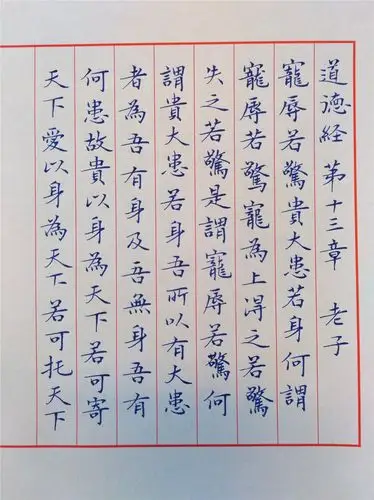 道德经 第十三章 老子
寵辱若驚貴大患若身何謂
寵辱若驚寵為上淂之若驚
失之若驚是謂寵辱若驚何
謂貴大患若身吾所以有大患
者為吾有身及吾無身吾有
何患故貴以身為天下若可寄
天下愛以身為天下若可托天下